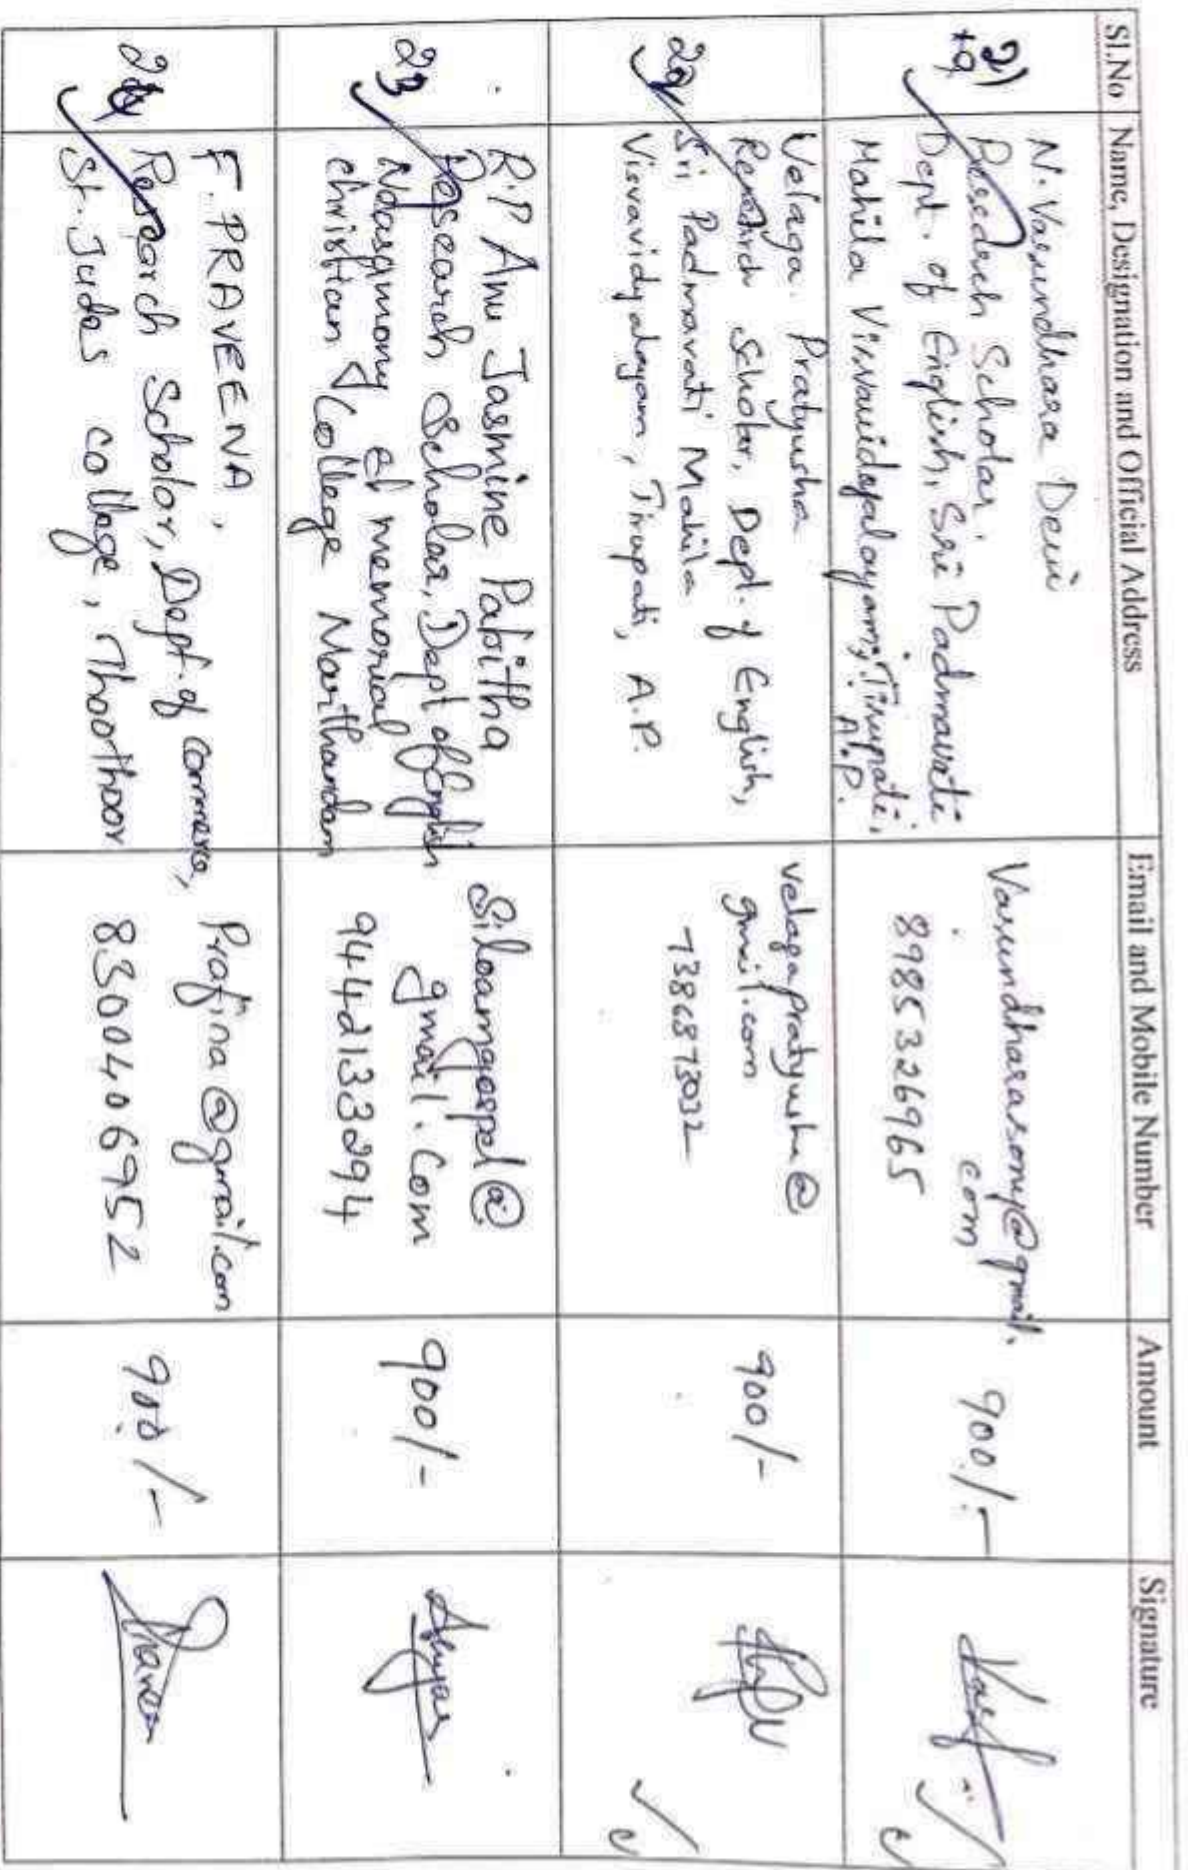 Sl.No Name, Designation and Official Address Email and Mobile Number Amount Signature
21)
19
N. Vasundhara Devi
Research Scholar,
Dept. of English, Sri Padmavati
Mahila Visvavidyalayam, Tirupati,
A.P.
Vasundharasony@gmail.
com
8985326965
900/-
22
Velaga. Pratyusha
Research Scholar, Dept. of English,
Sri Padmavati Mahila
Visvavidyalayam, Tirupati, A.P.
velagapratyusha@
gmail.com
7386873032
900/-
23
R.P Anu Jasmine Pabitha
Research Scholar, Dept of English
christian College Marthandam
Siloamgospel@
gmail.com
9442133294
900/-
24
F. PRAVEENA,
Research Scholar, Dept. of commerce,
St. Judes college, Thoothoor
Prafina@gmail.com
8300406952
900/-